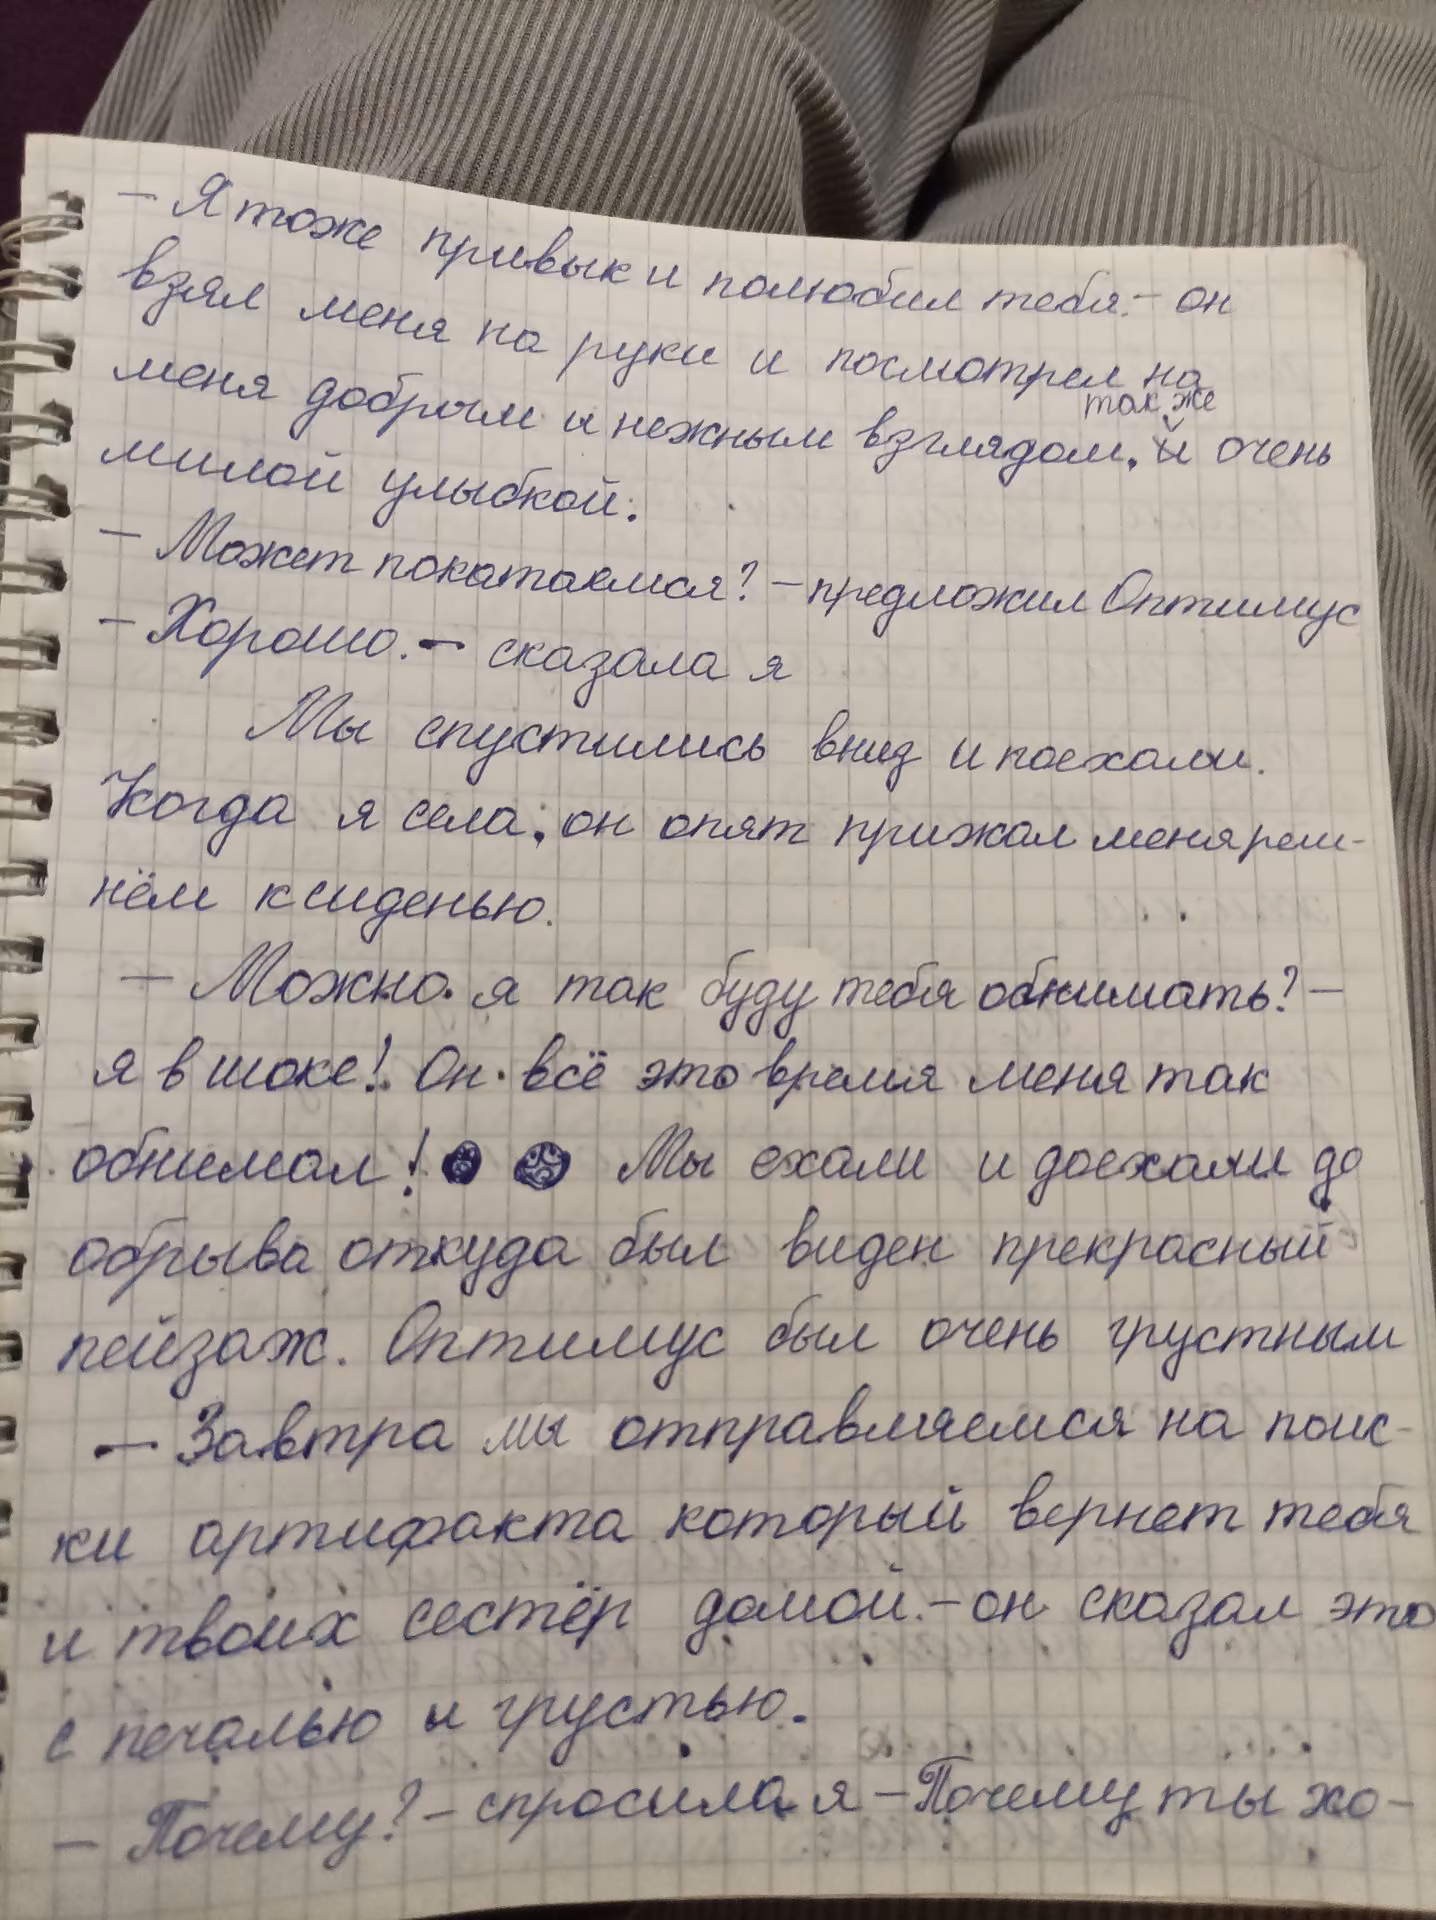 — Я тоже привык и полюбил тебя. — он
взял меня на руки и посмотрел на
меня добрым и нежным взглядом, и также очень
милой улыбкой.
— Может покатаемся? — предложил Оптимус
— Хорошо. — сказала я
Мы спустились вниз и поехали.
Когда я села, он опят прижал меня рем-
нём к сиденью.
— Можно я так буду тебя обнимать? —
я в шоке! Он всё это время меня так
обнимал! Мы ехали и доехали до
обрыва откуда был виден прекрасный
пейзаж. Оптимус был очень грустным
— Завтра мы отправляемся на поис-
ки артифакта который вернет тебя
и твоих сестёр домой. — он сказал это
с печалью и грустью.
— Почему? — спросила я — Почему ты хо-